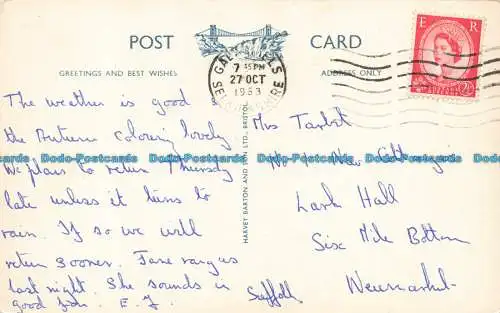 POST CARD
GREETINGS AND BEST WISHES
ADDRESS ONLY
GALASHIELS
7 45 PM
27 OCT
1953
SELKIRKSHIRE
E R
HARVEY BARTON AND SON LTD., BRISTOL
The weather is good
the Autumn colouring lovely
We plan to return Thursday
late unless it turns to
rain. If so we will
return sooner. Jane rang us
last night. She sounds in
good form. E. J.
Mrs
No New Cottages
Lark Hall
Six Mile Bottom
Newmarket
Suffolk
Dodo-Postcards Dodo-Postcards Dodo-Postcards Dodo-Postcards Dodo-Postcards